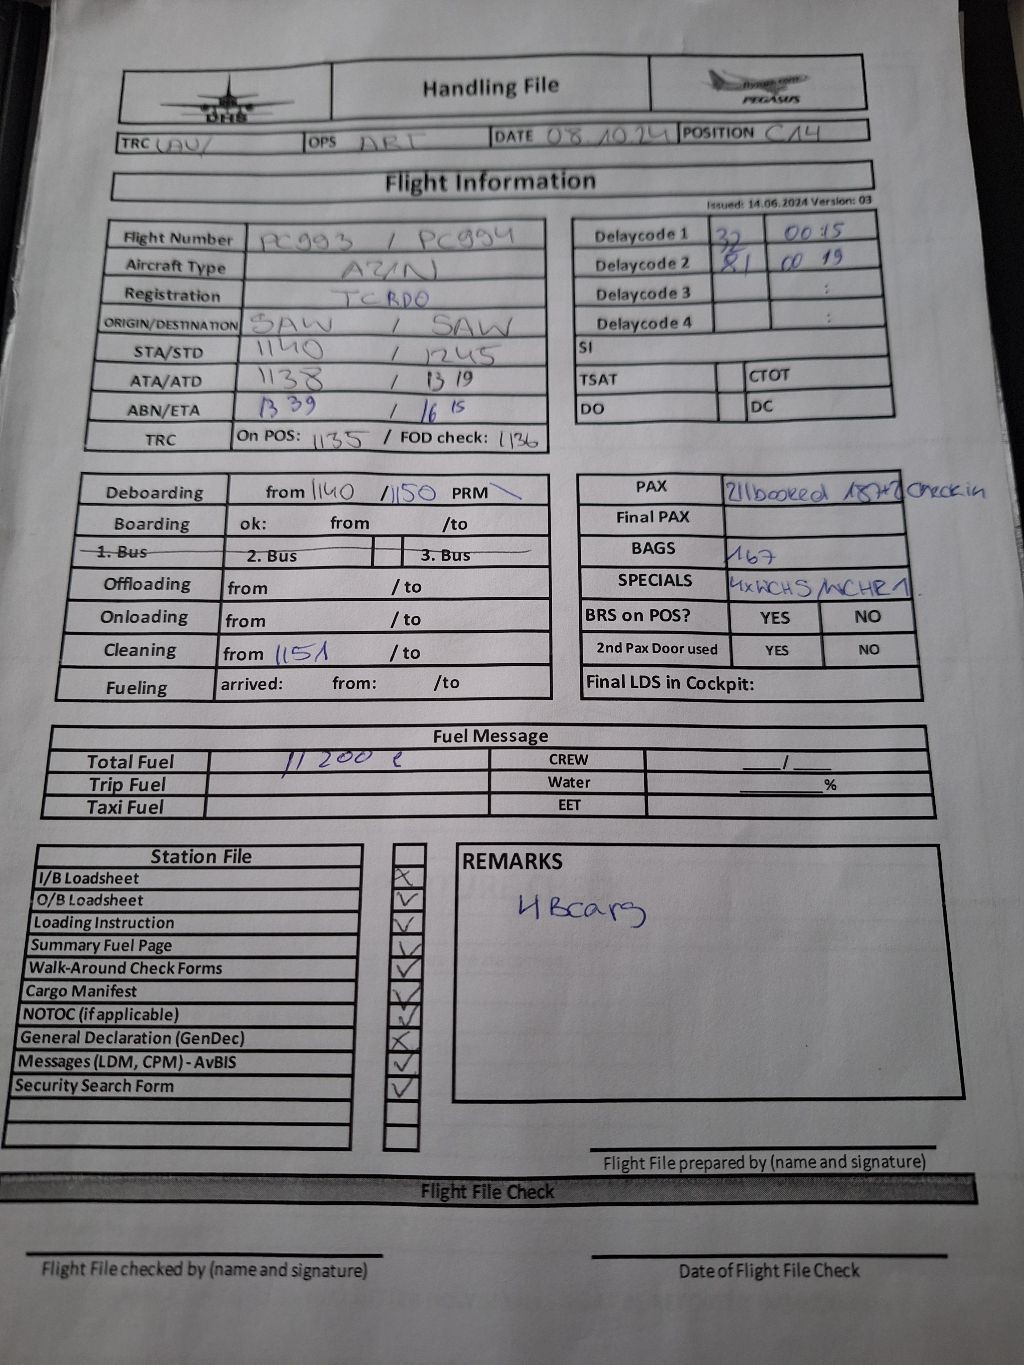 DHS
Handling File
flypgs.com
PEGASUS
TRC LAU/ OPS ART DATE 08.10.24 POSITION C14
Flight Information
Issued: 14.06.2024 Version: 03
Flight Number PC993 / PC994
Aircraft Type A21N
Registration TCRDO
ORIGIN/DESTINATION SAW / SAW
STA/STD 1140 / 1245
ATA/ATD 1138 / 13 19
ABN/ETA 13 39 / 16 15
TRC On POS: 1135 / FOD check: 1136
Delaycode 1 32 00:15
Delaycode 2 81 00 19
Delaycode 3 :
Delaycode 4 :
SI
TSAT CTOT
DO DC
Deboarding from 1140 /1150 PRM \
Boarding ok: from /to
1. Bus 2. Bus 3. Bus
Offloading from / to
Onloading from / to
Cleaning from 1151 / to
Fueling arrived: from: /to
PAX 211booked 187+2 checkin
Final PAX
BAGS 167
SPECIALS 4xWCHS/WCHR1
BRS on POS? YES NO
2nd Pax Door used YES NO
Final LDS in Cockpit:
Fuel Message
Total Fuel 11 200 l CREW ___/___
Trip Fuel Water ______%
Taxi Fuel EET
Station File
I/B Loadsheet X
O/B Loadsheet ✓
Loading Instruction ✓
Summary Fuel Page ✓
Walk-Around Check Forms ✓
Cargo Manifest ✓
NOTOC (if applicable) ✓
General Declaration (GenDec) X
Messages (LDM, CPM) - AvBIS ✓
Security Search Form ✓
REMARKS
4 Bcarg
Flight File prepared by (name and signature)
Flight File Check
Flight File checked by (name and signature)
Date of Flight File Check